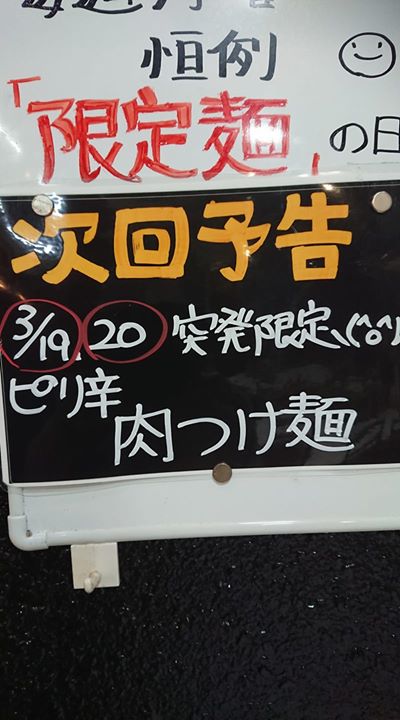 恒例
「限定麺」の日
次回予告
3/19、20 突発限定、(^o^)
ピリ辛
肉つけ麺